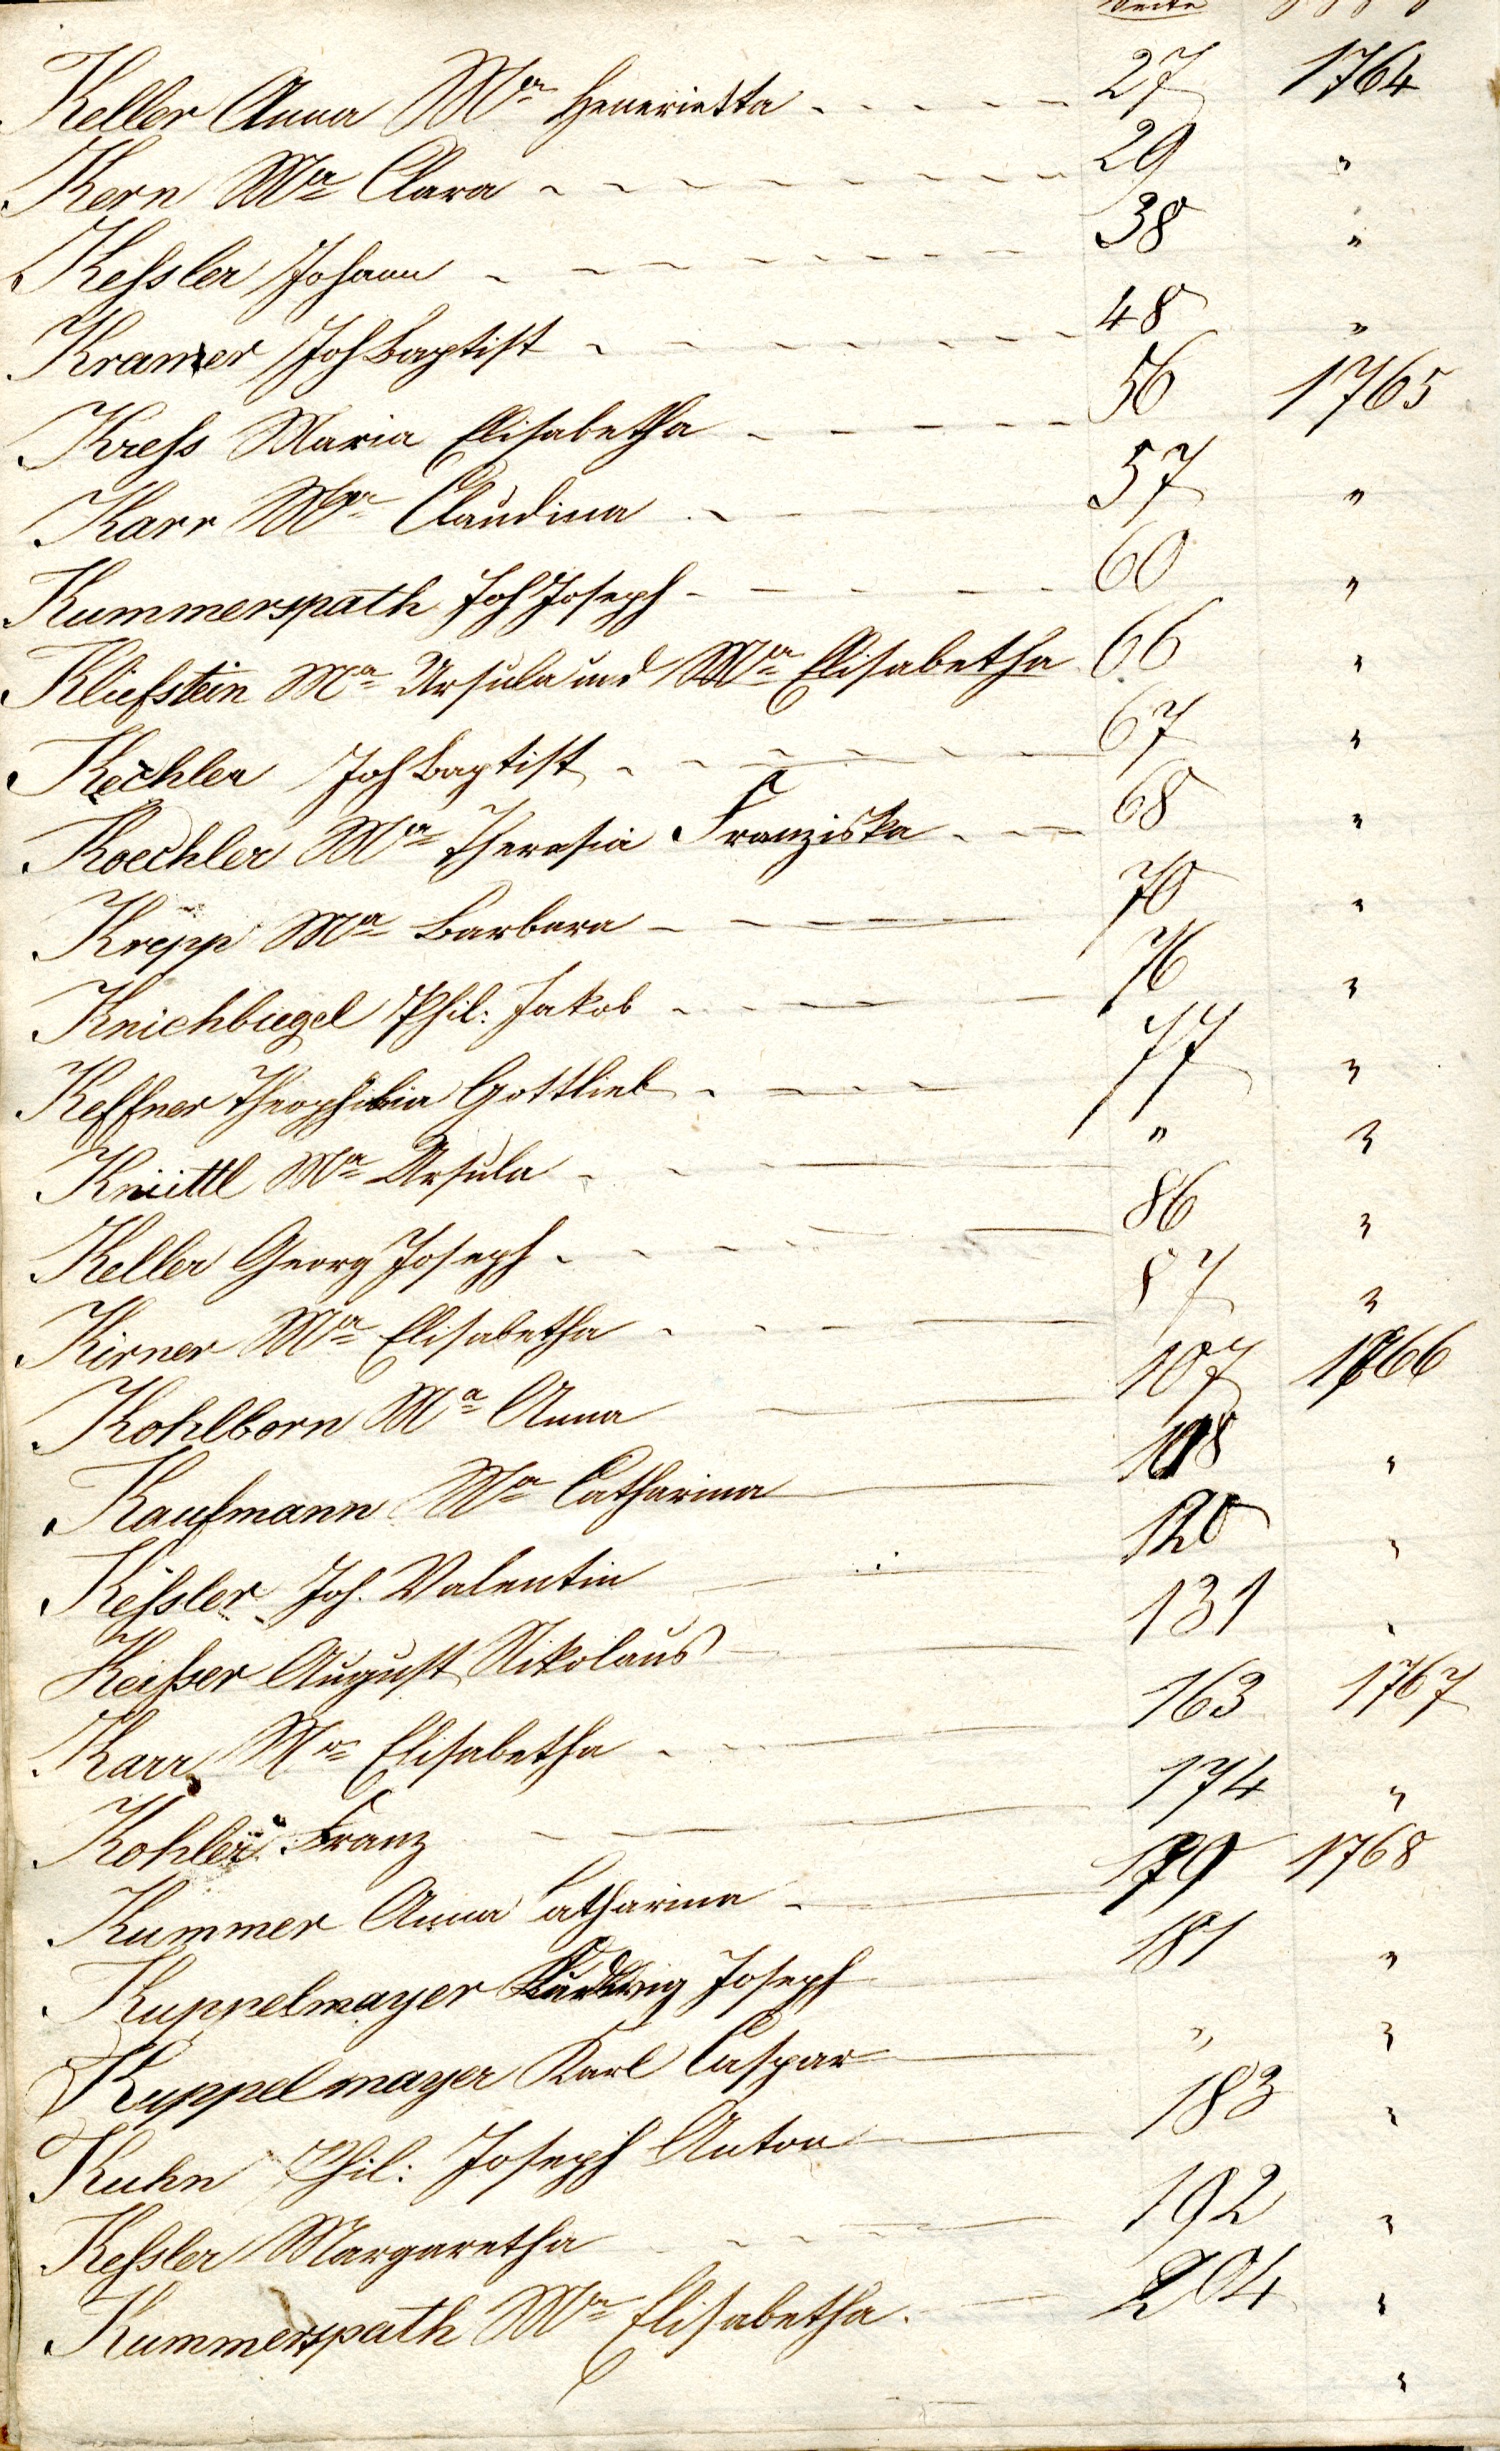 Seite
Keller Anna Ma Henerietta 27 1764
Kern Ma Clara 29 "
Keßler Johann 38 "
Kramer Joh Baptist 48 "
Kreßs Maria Elisabetha 56 1765
Karr Ma Claudina 57 "
Kummerspath Joh Joseph 60 "
Kliefstein Ma Ursula und Ma Elisabetha 66 "
Kechler Joh Baptist 67 "
Koechler Ma Theresia Franziska 68 "
Krepp Ma Barbara 70 "
Knichbiegel Phil: Jakob 76 "
Keffner Theophilia Gottlieb 77 "
Knittl Ma Ursula " "
Keller Georg Joseph 86 "
Kirner Ma Elisabetha 87 "
Kohlborn Ma Anna 107 1766
Kaufmann Ma Catharina 108 "
Keßler Joh. Valentin 120 "
Keißer August Nikolaus 131 "
Karr Ma Elisabetha 163 1767
Kohler Franz 174 "
Kummer Anna Catharina 179 1768
Kuppelmayer Ludwig Joseph 181 "
Kuppelmayer Karl Caspar " "
Kuhn Phil: Joseph Anton 183 "
Keßler Margaretha 192 "
Kummerspath Ma Elisabetha 204 "
"